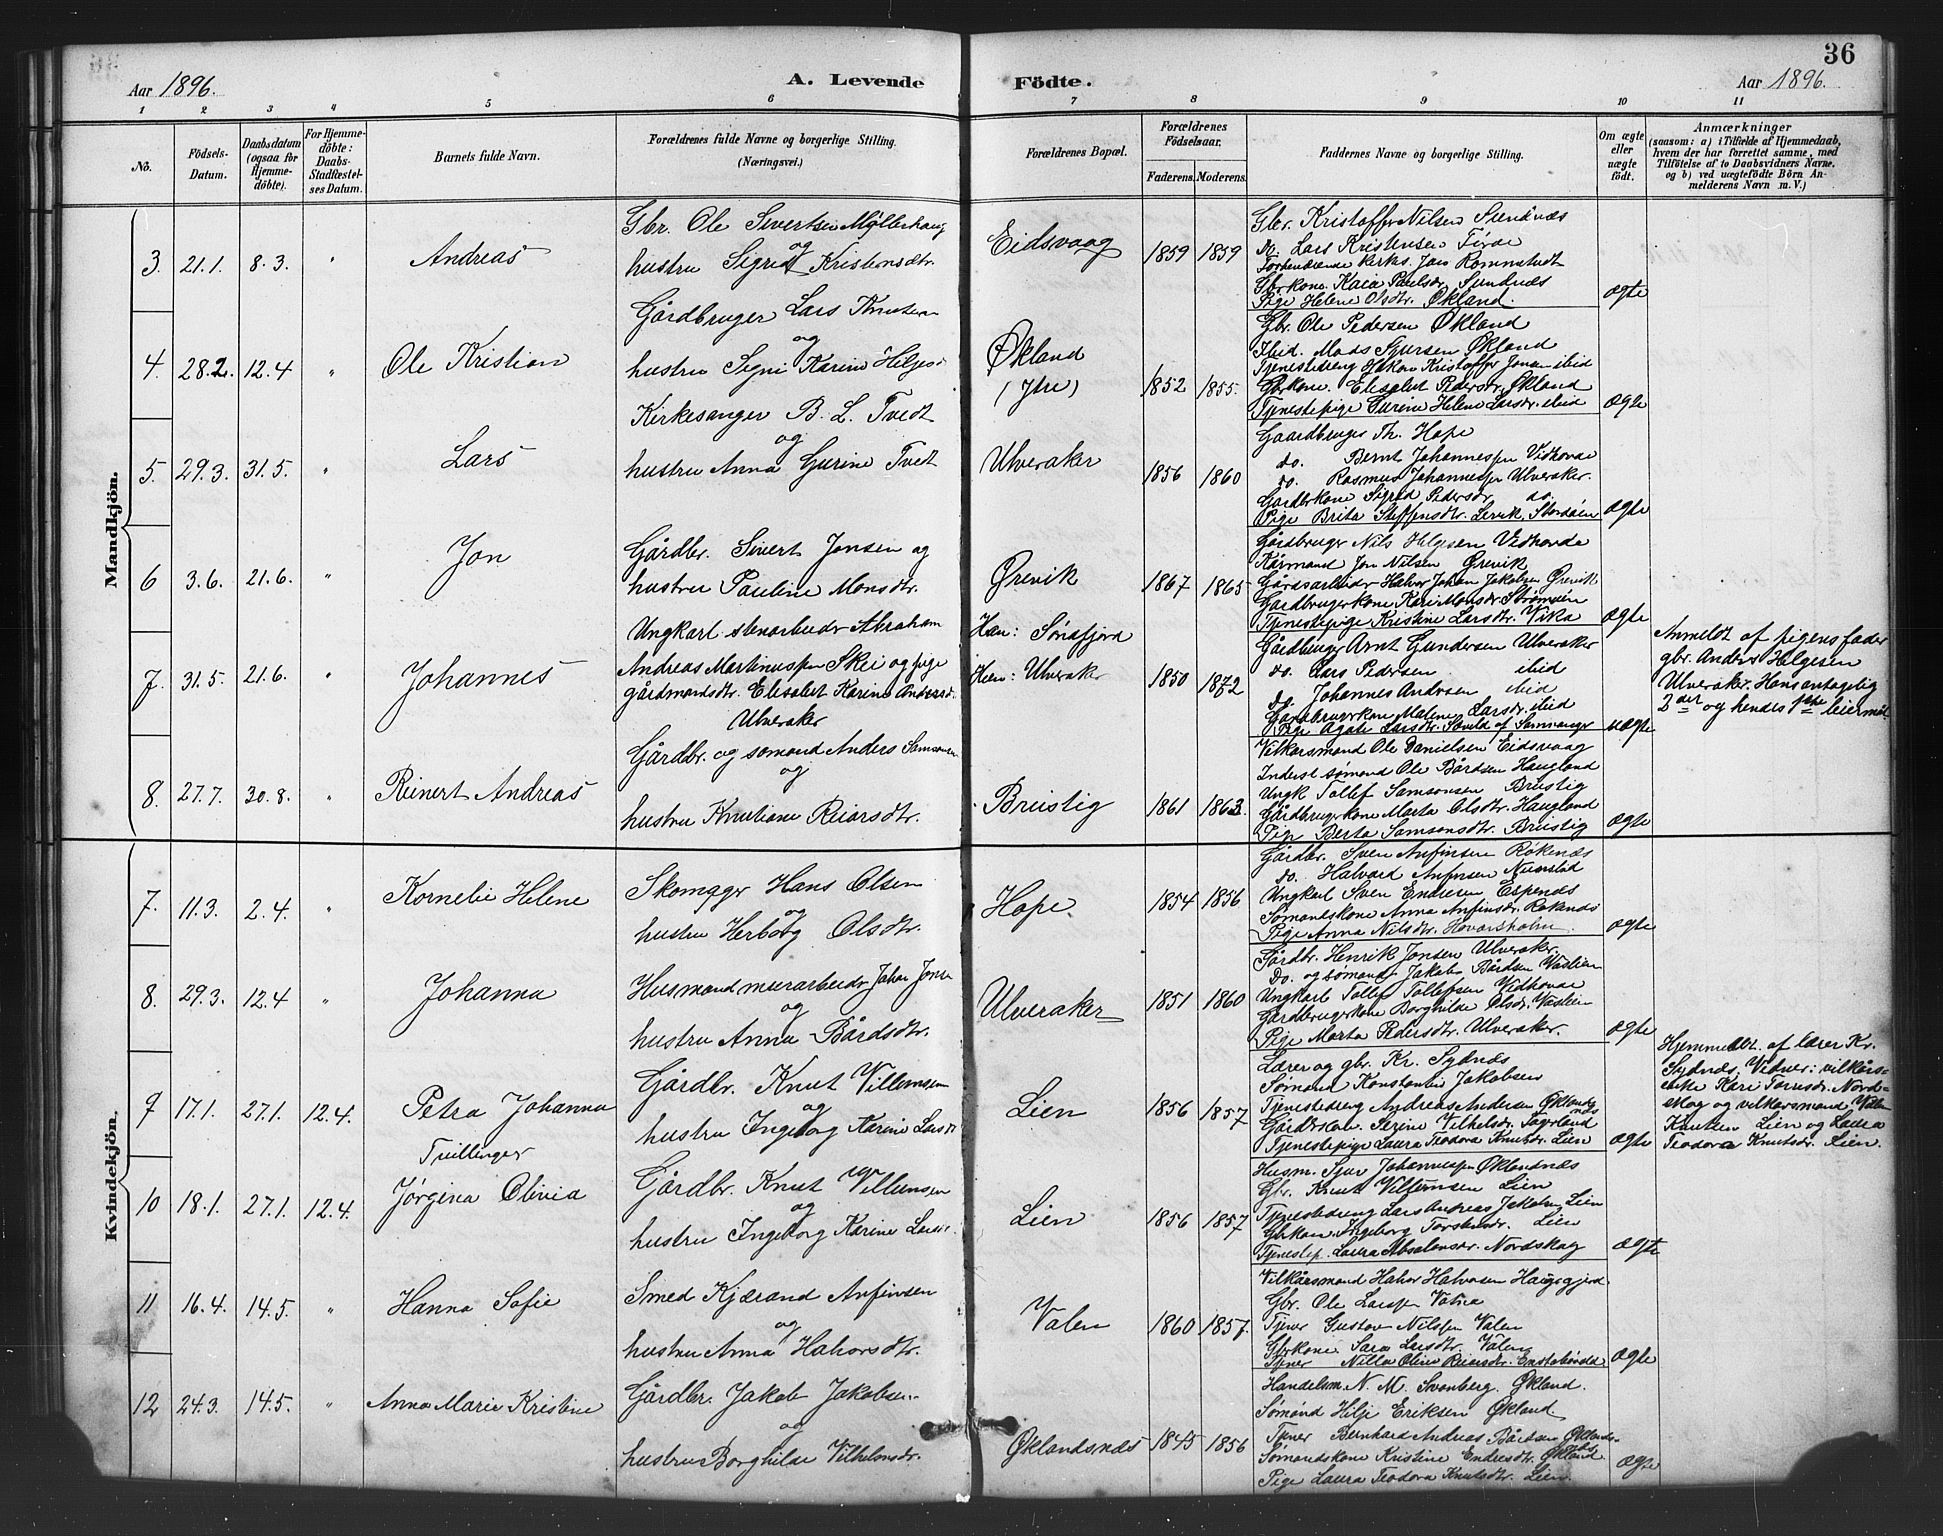 36
Aar 1896.
A. Levende Födte.
Aar 1896.
1 2 3 4 5 6 7 8 9 10 11
No.
Födsels-Datum.
Daabsdatum (ogsaa for Hjemme-döbte).
For Hjemme-döbte: Daabs-Stadfæstel-ses Datum.
Barnets fulde Navn.
Forældrenes fulde Navne og borgerlige Stilling. (Næringsvei.)
Forældrenes Bopæl.
Forældrenes Födselsaar.
Faderens. Moderens.
Faddernes Navne og borgerlige Stilling.
Om ægte eller uægte födt.
Anmærkninger
(saasom: a) i Tilfælde af Hjemmedaab,
hvem der har forrettet samme, med
Tilföielse af to Daabsvidners Navne,
og b) ved uægtefödte Börn An-
melderens Navn m. V.)
Mandkjön.
3. 21.1. 8.3. " Andreas
Gbr. Ole Sivertsen Myllerhaug
og
hustru Sigrid Kristensdtr.
Eidsvaag 1859 1859
Gbr. Kristoffer Nilsen Sundnæs
do. Lars Kristensen
Forhenværende Kirkes. Jon
Gbrkone Kaia Paulsdr. Sundnæs
Pige Helene Olsdtr. Økland.
ægte
4. 28.2. 12.4 " Ole Kristian
Gårdbruger Lars Knutsen
og
hustru Signi Karine Hiljesd.
Økland
(Ytre)
1852 1855.
Gbr. Ole Pedersen Økland
Ibid. Mads Sjursen Økland
Tjenestedreng Håkon Kristoffer Jonsen ibid
Gbrkone. Elisabet Pedersdr. Økland
Tjenestepige Gurine Helene Larsdr. ibid
ægte
5. 29.3. 31.5. " Lars
Kirkesanger B. L. Tvedt
og
hustru Anna Gurine Tvedt
Ulveraker 1856 1860
Gaardbruger Th. Hope
do. Bernt Johannessen Vidhovde
do. Rasmus Johannessen Ulveraker.
Gårdbrkone Sigrid Pedersdr do.
Pige Brita Steffensdtr. Lervik, Stordøen
ægte
6 3.6. 21.6. " Jon
Gårdbr. Sivert Jonsen og
hustru Pauline Monsdtr.
Ørevik 1867 1865
Gårdbruger Nils Helgesen Vidhovde
Kårmand Jon Nilsen Ørevik
Gårdsarbeider Halvor Johan Jakobsen Ørevik
Gårdbrugerkone Kari Monsdr. Strømøen
Tjenestepige Kristine Larsdtr. Vika
ægte
7. 31.5. 21.6. " Johannes
Ungkarl stenarbeider Abraham
Andreas Martinussen Skei og pige
gårdmandsdtr. Elisabet Karine Andersd.
Ulveraker
Han: Sønafjord
Hun: Ulveraker
1850 1872
Gårdbruger Arnt Gundersen Ulveraker
do. Lars Pedersen ibid
do. Johannes Andersen ibid
Gårdbrugerkone Malene Larsdr. ibid
Pige Agate Larsdtr. af Samnanger
uægte
Anmeldt af pigens fader
gbr. Anders Helgesen
Ulveraker. Hans antagelig
2det og hendes 1ste leiermål
8. 27.7. 30.8. " Reinert Andreas
Gårdbr. og sømand Anders Samsonsen
og
hustru Knutiane Reiarsdtr.
Bruistig 1861 1863.
Vilkårsmand Ole Danielsen Eidsvaag
Inderst sømand Ole Bårdsen Haugland
Ungk. Tollef Samsonsen Bruistig
Gårdbrugerkone Marta Olsdtr. Haugland
Pige Berta Samsonsdtr. Bruistig
ægte
Kvindekjön.
7. 11.3. 2.4. " Kornelie Helene
Skomager Hans Olsen
og
hustru Herborg Olsdtr.
Hope. 1854 1856
Gårdbr. Sven Anfinsen Røkenæs
do. Halvard Anfinsen
Ungkarl Sven Endresen Espenæs
Sømandskone Anna Anfinsdr. Røkenæs
Pige Anna Nilsdtr. Hovarsholm.
ægte
8. 29.3. 12.4 " Johanna
Husmand murarbeider Johan Jonsen
og
hustru Anna Bårdsdtr.
Ulveraker 1851 1860
Gårdbr. Henrik Jonsen Ulveraker
Do. og sømand Jakob Bårdsen
Ungkarl Tollef Tollefsen Vidhovde
Gårdbrugerkone Borghilde Olsdr.
Pige Marta Pedersdtr. Ulveraker.
ægte
9 17.1. 27.1. 12.4. Petra Johanna
Tvillinger
Gårdbr. Knut Villumsen
og
hustru Ingeborg Karine Larsd.
Lien 1856 1857
Lærer og gbr. Kr. Sydnæs
Sømand Konstantin Jakobsen
Tjenestedreng Andreas Andersen Øklandsnæs
Gårdbrkone. Serine Vilhelmsdr. Fagerland
Tjenestepige Laura Teodora Knutsdr. Lien
ægte
Hjemmedbt. af lærer Kr.
Sydnæs, Vidner: vilkårs-
enke Kari Tornsdr. Nord-
skog og vilkårsmand Villum
Knutsen Lien og Laura
Teodora Knutsdr. Lien.
10 18.1. 27.1. 12.4. Jørgina Olivia
Gårdbr. Knut Villumsen
og
hustru Ingeborg Karine Larsd.
Lien 1856 1857
Husm. Sjur Johannessen Øklandnæs
Gbr. Knut Villumsen Lien
Tjenestedreng Lars Andreas Jakobsen Lien
Gbrkone Ingeborg Torstensdr. Lien
Tjenestep. Laura Absalonsdr. Nordskog
ægte
11 16.4. 14.5. " Hanna Sofie
Smed Kjærand Anfinsen
og
hustru Anna Halvorsdtr.
Valen 1860 1857.
Vilkårsmand Halvor Halvorsen Haugsgjerd
Gbr. Ole Larsen Vatna
Tjener Gustav Nilsen Valen
Gbrkone Sara Larsdtr. Valen
Tjener Nilla Oline Reiarsdtr.
ægte
12 24.3. 14.5. " Anna Marie Kristine
Gårdbr. Jakob Jakobsen
og
hustru Borghilde Vilhelmsdr.
Øklandsnæs 1845 1856
Handelsm. N. M. Svanberg. Økland.
Sømand Hilje Eriksen Økland.
Tjener Bernhard Andreas Bårdsen Øklandsnæs
Sømandskone Kristine Endresdtr. Økland
Pige Laura Teodora Knutsdtr. Lien.
ægte